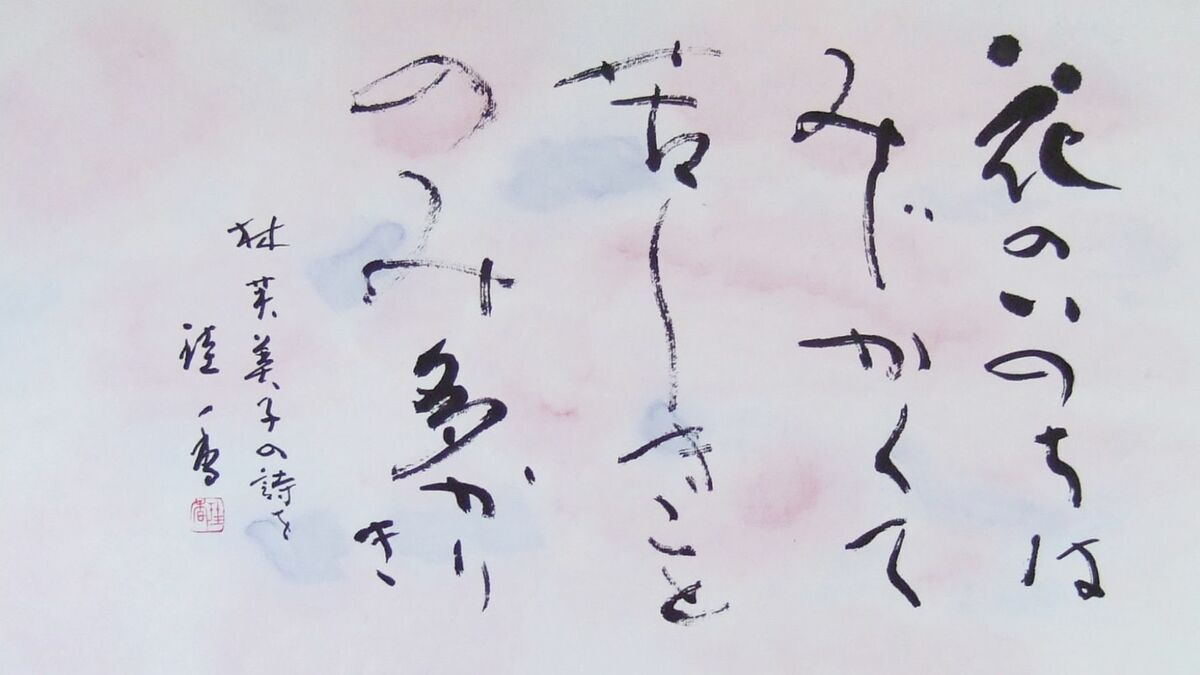 花のいのちは
みじかくて
苦しきこと
のみ多かりき
林芙美子の詩を